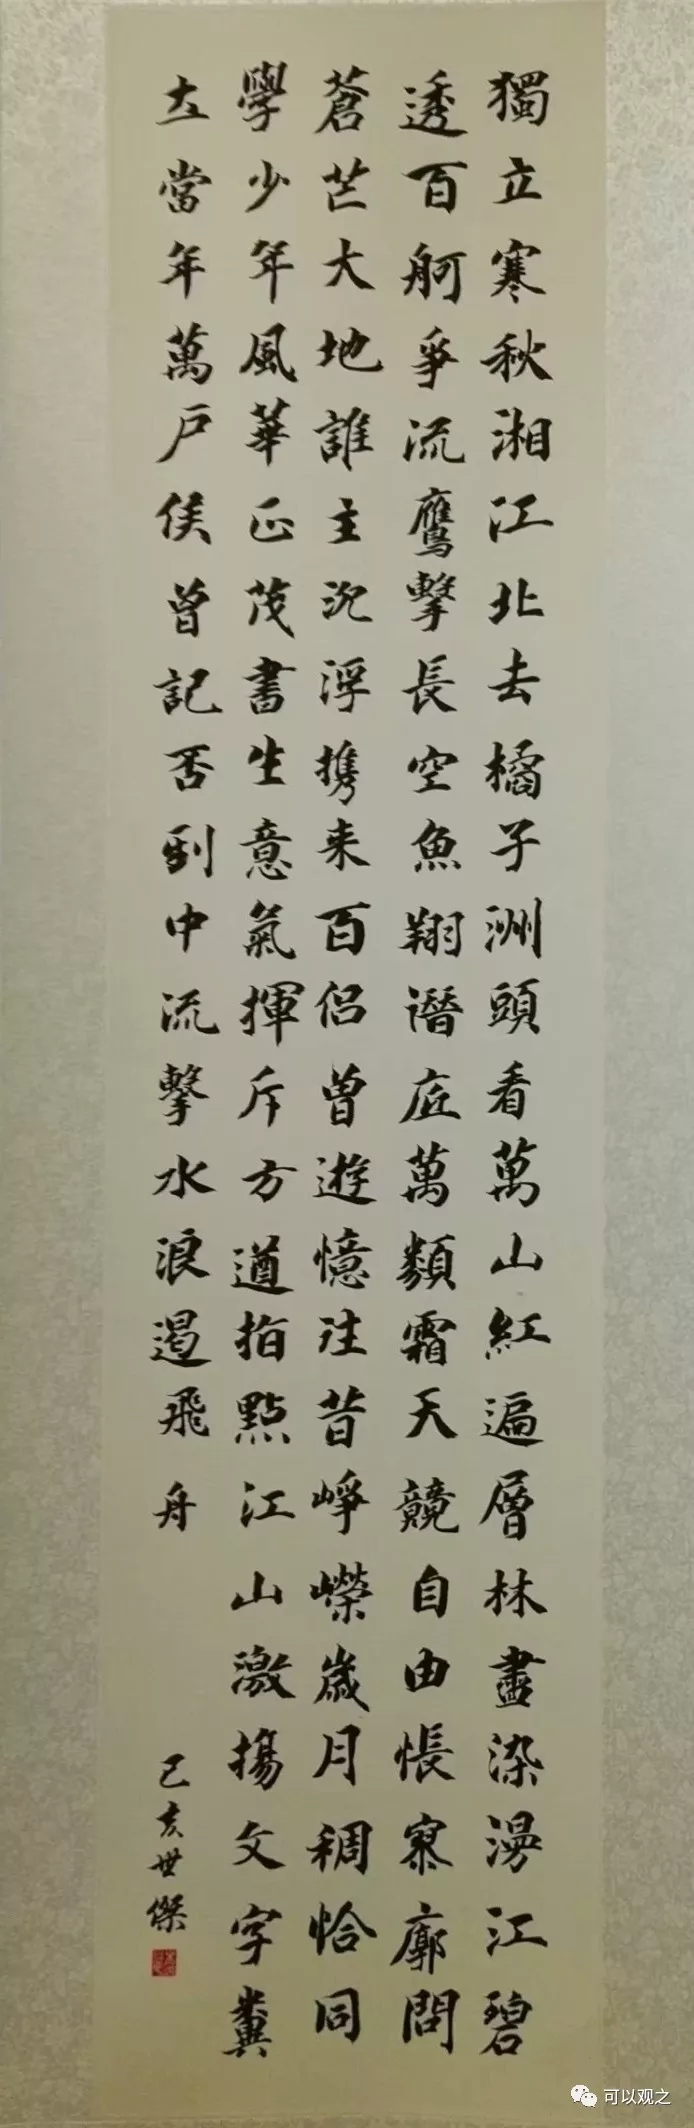 獨立寒秋湘江北去橘子洲頭看萬山紅遍層林盡染漫江碧
透百舸爭流鷹擊長空魚翔潛底萬類霜天競自由悵寥廓問
蒼茫大地誰主沉浮携来百侣曾遊憶往昔崢嶸歲月稠恰同
學少年風華正茂書生意氣揮斥方遒指點江山激揚文字糞
土當年萬户侯曾記否到中流擊水浪遏飛舟
己亥世傑
可以观之